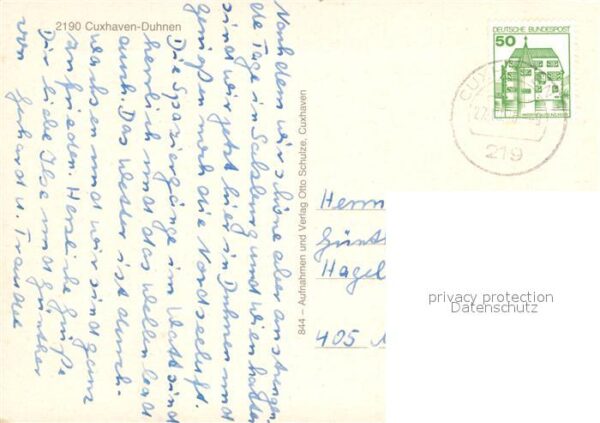 2190 Cuxhaven-Duhnen
Nach dem wir schöne aber anstrengen-
de Tage in Salzburg und Wien hatten
sind wir jetzt hier in Duhnen und
genießen noch die Nordseeluft.
Die Spaziergänge im Watt sind
herrlich und das Wellenbad
auch. Das Wetter ist durch-
wachsen und wir sind ganz
zufrieden. Herzliche Grüße
Dir liebe Ilse und Günther
von Gerhard u. Traudel
844 – Aufnahmen und Verlag Otto Schulze, Cuxhaven
DEUTSCHE BUNDESPOST
50
219
Herrn
Günt
Hagel
405
privacy protection
Datenschutz